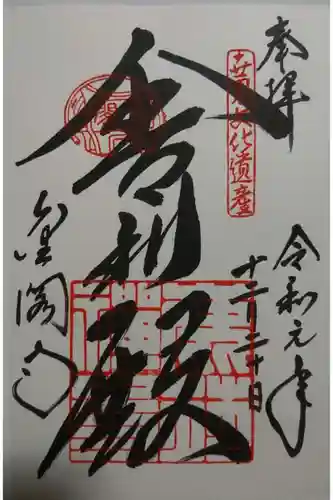 奉拝
世界文化遺産
令和元年
十二月二十日
舎利殿
金閣寺